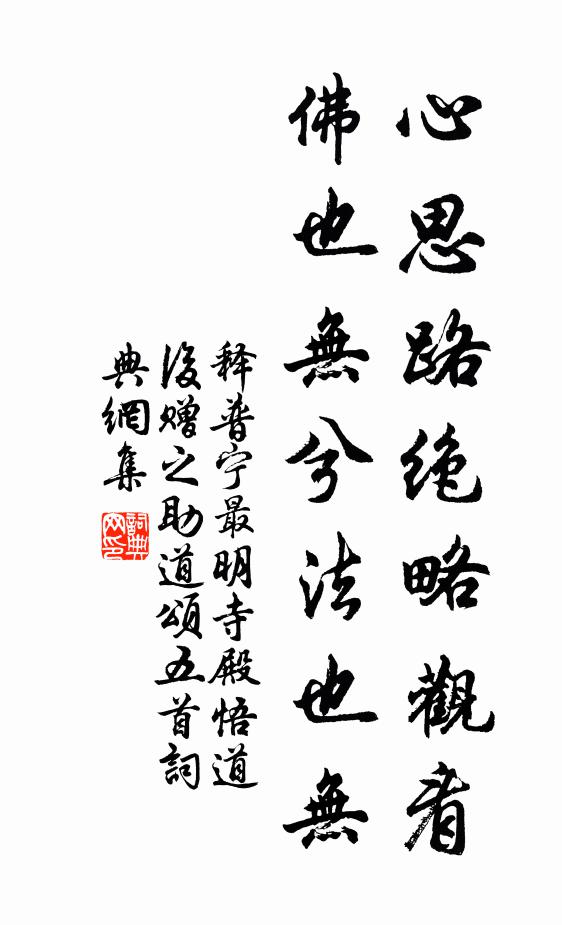 心思路绝略觀看
佛也無兮法也無
释普宁最明寺殿悟道
後赠之助道頌五首詞
典網集
詞典網印